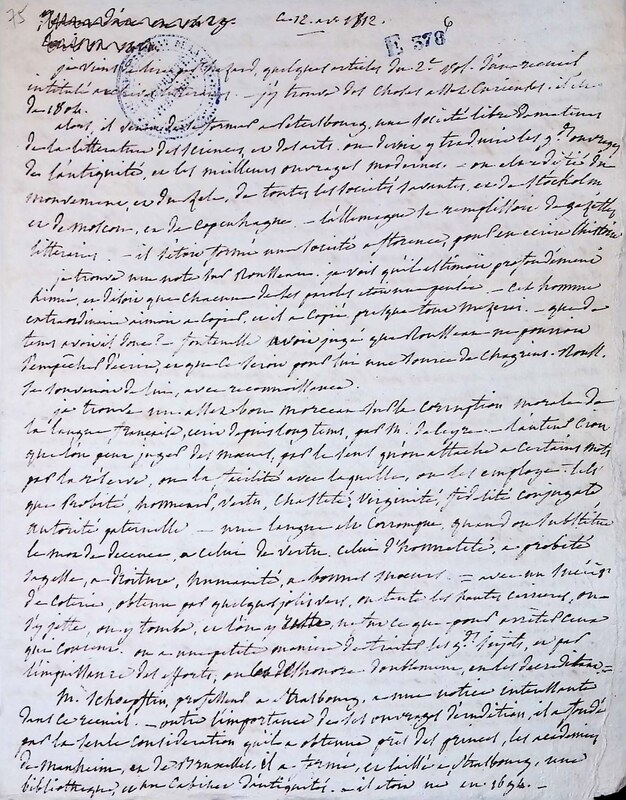 75
ce 12. avr 1812.
6
E 378
je viens de lire par hazard, quelques articles du 2e vol. d'un recueil
intitulé archives litteraires. - j'y trouve des choses assez curieuses. il est
de 1804.
alors, il venoit de se former a Petersbourg, une société libre d'amateurs
de la litterature des sciences, et des arts. on devoit y traduire les gds ouvrages
de l'antiquité, et les meilleurs ouvrages modernes. - on étoit édifié du
mouvement, et du zele, de toutes les sociétés savantes, et de Stockolm
et de moscou, et de Copenhague. - l'allemagne se remplissoit de gazettes
litteraires. - il s'étoit formé une société a florence, pour en ecrire l'histoire
je trouve une note sur Rousseau. je vois qu'il estimoit profondément
et disoit que chacune de ses paroles étoit une pensée. - cet homme
extraordinaire aimoit a copier, et il a copié presque tout mezerai. - que de
tems avoit il donc? - fontenelle avoit jugé que Rousseau ne pourroit
s'empêcher d'ecrire, et que ce seroit pour lui une source de chagrins. Rouss.
se souvenoit de lui, avec reconnoissance.
je trouve un assez bon morceau sur la corruption morale de
la langue française, ecrit depuis long tems, par M. Deleyre. - l'auteur croit
que l'on peut juger des moeurs, par le sens qu'on attache a certains mots
par la réserve, ou la facilité avec laquelle, on les employe. tels
que Probité, honneur, vertu, chasteté, virginité, fidélité conjugale
autorité paternelle - une langue se corrompt, quand on substitue
le mot de decence, a celui de vertu, celui d'honnêteté, a probité
sagesse, a droiture, humanité, a bonnes moeurs. = avec un
de coterie, obtenu par quelques jolis vers, on tente les hautes carrieres, on
s'y jette, on y tombe, et l'on y reste, ne fut ce que pour arrêter ceux
qui courent. on a une petite maniere de traiter les gds sujets, et par
l'impuissance des efforts, on
M. Schoepflin, professeur a strasbourg, a une notice interessante
dans ce recueil. - outre l'importance de ses ouvrages d'erudition, il a fondé
par la seule consideration qu'il a obtenue près des princes, les académies
de manheim, et de Bruxelles. il a formé, et laissé a strasbourg, une
bibliothéque, et un cabinet d'antiquités. - il étoit né en 1694. -